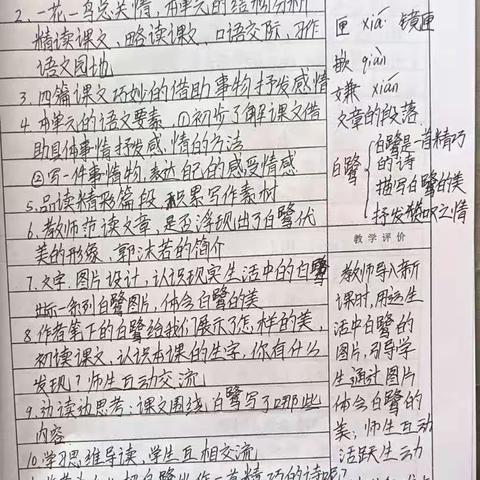 2、一花一鸟总关情,本单元的结构分析
精读课文、略读课文、口语交际、习作
语文园地
3.四篇课文巧妙的借助事物抒发感情
4.本单元的语文要素,①初步了解课文借
助具体事情抒发感情的方法
②写一件事情物,表达自己的感受情感
5.品读精彩篇段,积累写作素材
6.教师范读文章,是否浮现出了白鹭优
美的形象,郭沫若的简介
7.文字,图片设计,认识现实生活中的白鹭
出示一系列白鹭图片,体会白鹭的美
8.作者笔下的白鹭给我们展示了怎样的美,
初读课文,认识本课的生字,你有什么
发现?师生互动交流
9.边读边思考:课文围绕白鹭写了哪些
内容
10.学习思维导读,学生互相交流
把白鹭当作一首精巧的诗呢?
匣 xiá 镜匣
嵌 qiàn
嫌 xián
文章的段落
白鹭
白鹭是一首精巧
的诗
描写白鹭的美
抒发赞叹之情
教学评价
教师导入新
课时,用运生
活中白鹭的
图片,引导学
生通过图片
体会白鹭的
美,师生互动
活跃生动